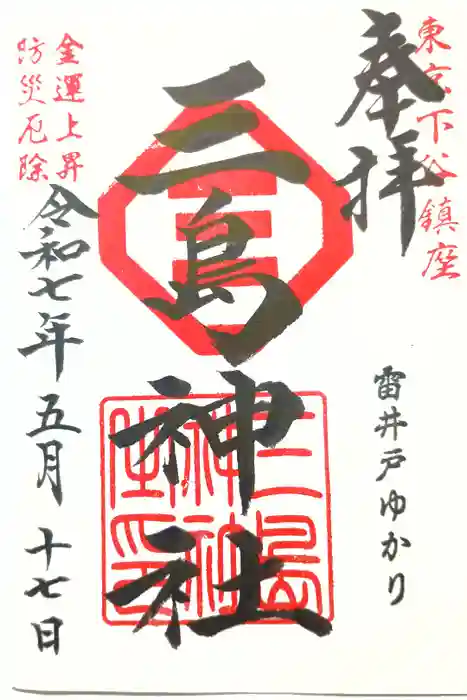 東京下谷鎮座
奉拝
雷井戸ゆかり
三島神社
三島
神社
金運上昇
防災厄除
令和七年五月十七日